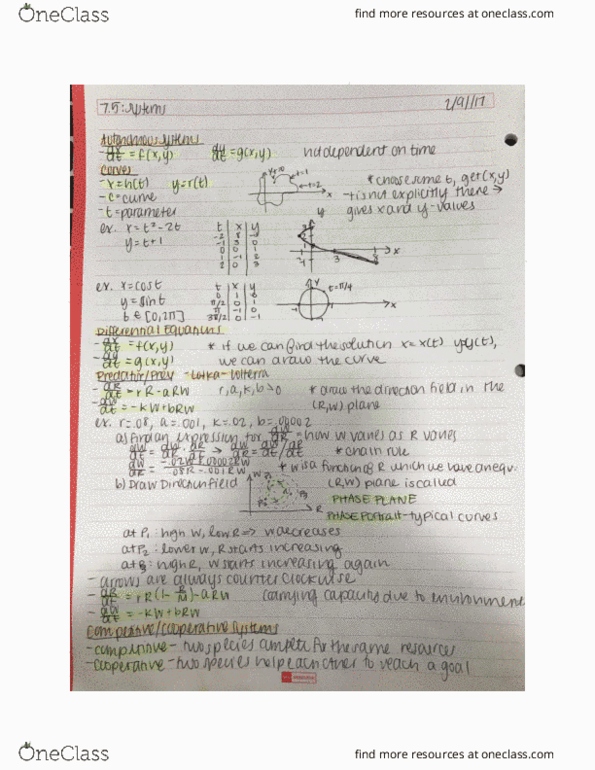 OneClass find more resources at oneclass.com
7.5: Systems 2/9/17
Autonomous Systems
-dx/dt = f(x,y) dy/dt = g(x,y) not dependent on time
Curves
- x=h(t) y=r(t) * choose some t, get (x,y)
- C = curve t is not explicitly there →
- t = parameter gives x and y-values
ex. x = t² - 2t t x y
y = t+1 -2 8 -1
-1 3 0
0 0 1
1 -1 2
2 0 3
ex. x = cost t x y t=π/4
y = sint 0 1 0
t ∈ [0,2π] π/2 0 1
π -1 0
3π/2 0 -1
Differential Equations
-dx/dt = f(x,y) * if we can find the solution x = x(t) y=y(t),
-dy/dt = g(x,y) we can draw the curve
Predator/Prey - Lotka-Volterra
-dR/dt = rR - aRW r,a,k,b>0 * draw the direction field in the
-dW/dt = -kW+bRW (R,W) plane
ex. r=.08, a=.001, k=.02, b=.00002
a) find an expression for dW/dR = how W varies as R varies
dW/dt = dW/dR · dR/dt → dW/dR = dW/dt / dR/dt * chain rule
dW/dR = -.02W+.00002RW / .08R-.001RW * W is a function of R which we have an equ.
b) Draw Direction field W R (R,W) plane is called
PHASE PLANE
PHASE PORTRAIT - typical curves
at P₁: high W, low R ⇒ W decreases
at P₂: lower W, R starts increasing
at P₃: high R, W starts increasing again
- arrows are always counter clockwise
-dR/dt = rR(1 - R/M) - aRW (carrying capacity due to environment
-dW/dt = -kW+bRW
Competitive/Cooperative Systems
- competitive - two species compete for the same resources
- cooperative - two species help each other to reach a goal
OneClass find more resources at oneclass.com